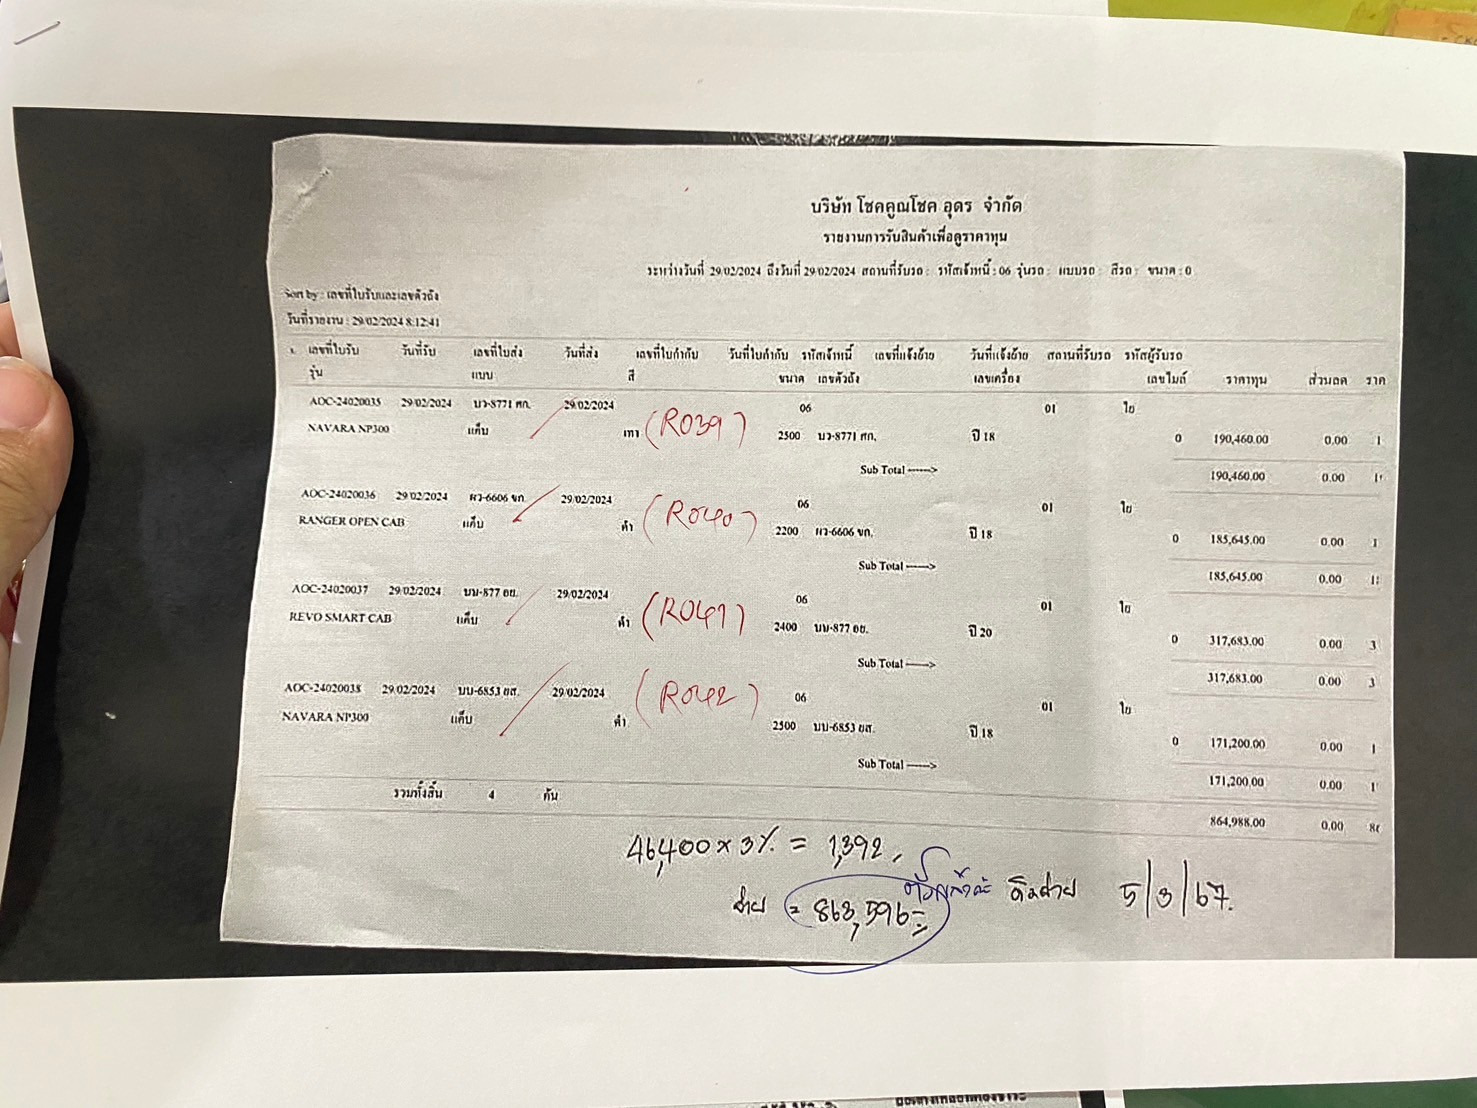 บริษัท โชคคูณโชค อุดร จำกัด
รายงานการรับสินค้าเพื่อดูราคาทุน
ระหว่างวันที่ 29/02/2024 ถึงวันที่ 29/02/2024 สถานที่รับรถ : รหัสเจ้าหนี้ : 06 รุ่นรถ : แบบรถ : สีรถ : ขนาด : 0
Sort by : เลขที่ใบรับและเลขตัวถัง
วันที่รายงาน : 29/02/2024 8:12:41
เลขที่ใบรับ วันที่รับ เลขที่ใบส่ง วันที่ส่ง เลขที่ใบกำกับ วันที่ใบกำกับ รหัสเจ้าหนี้ เลขที่แจ้งย้าย วันที่แจ้งย้าย สถานที่รับรถ รหัสผู้รับรถ
รุ่น แบบ สี ขนาด เลขตัวถัง เลขเครื่อง เลขไมล์ ราคาทุน ส่วนลด ราค
AOC-24020035 29/02/2024 บว-8771 ศก. 29/02/2024 06 01 ใย
NAVARA NP300 แค็บ เทา (R039) 2500 บว-8771 ศก. ปี 18 0 190,460.00 0.00 1
Sub Total ------> 190,460.00 0.00
AOC-24020036 29/02/2024 ผว-6606 ขก. 29/02/2024 06 01 ใย
RANGER OPEN CAB แค็บ ดำ (R040) 2200 ผว-6606 ขก. ปี 18 0 185,645.00 0.00 1
Sub Total ------> 185,645.00 0.00
AOC-24020037 29/02/2024 บน-877 อย. 29/02/2024 06 01 ใย
REVO SMART CAB แค็บ ดำ (R041) 2400 บน-877 อย. ปี 20 0 317,683.00 0.00 3
Sub Total ------> 317,683.00 0.00 3
AOC-24020038 29/02/2024 บบ-6853 ยส. 29/02/2024 06 01 ใย
NAVARA NP300 แค็บ ดำ (R042) 2500 บบ-6853 ยส. ปี 18 0 171,200.00 0.00 1
Sub Total ------> 171,200.00 0.00 1
รวมทั้งสิ้น 4 คัน 864,988.00 0.00
46,400 x 3% = 1,392.
จ่าย = 863,596.= ดิวจ่าย 5/3/67.